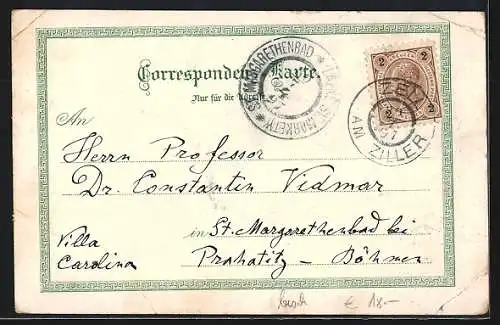 Correspondenz-Karte.
Nur für die Adresse.
ST. MARGARETHENBAD
ZELL
AM ZILLER
2 2
2 2
An
Herrn Professor
Dr. Constantin Vidmar
in St. Margarethenbad bei
Prahatitz – Böhmen
Villa
Carolina
€ 18.-